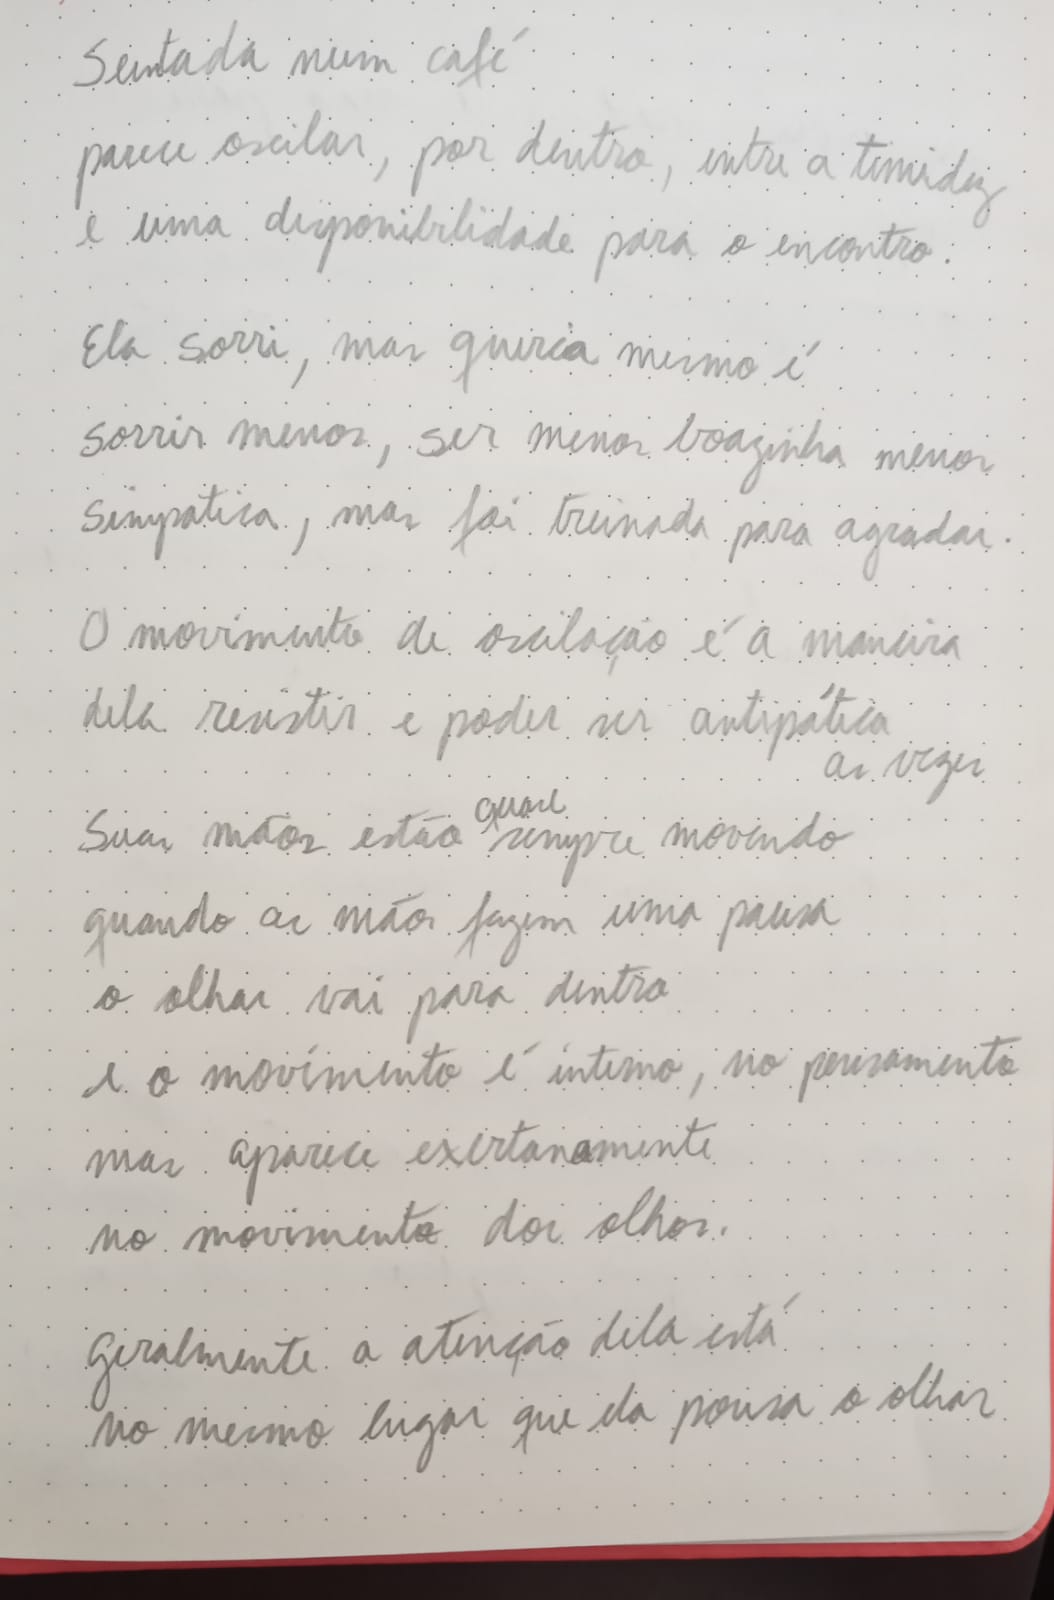 Sentada num café
parece oscilar, por dentro, entre a timidez
e uma disponibilidade para o encontro.
Ela sorri, mas queria mesmo é
sorrir menos, ser menos boazinha menos
simpatica, mas foi treinada para agradar.
O movimento de oscilação é a maneira
dela resistir e poder ser antipática
as vezes
Suas mãos estão quase sempre movendo
quando as mãos fazem uma pausa
o olhar vai para dentro
e o movimento é interno, no pensamento
mas aparece exertanamente
no movimento dos olhos.
Geralmente a atenção dela está
no mesmo lugar que ela pousa o olhar